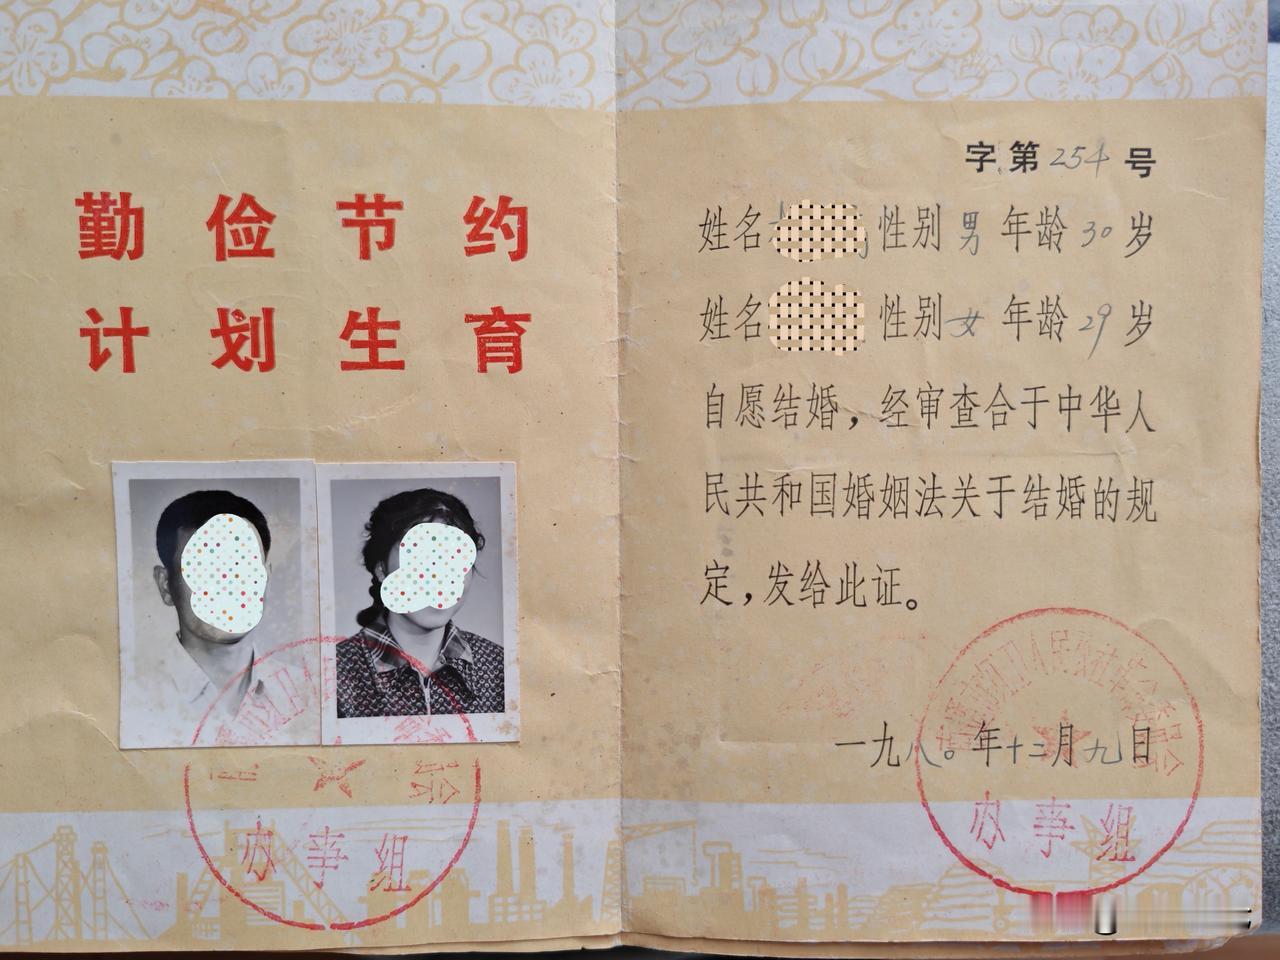 勤俭节约
计划生育
办事组
字第254号
姓名 性别 男 年龄 30 岁
姓名 性别 女 年龄 29 岁
自愿结婚，经审查合于中华人
民共和国婚姻法关于结婚的规
定，发给此证。
一九八〇年十二月九日
办事组